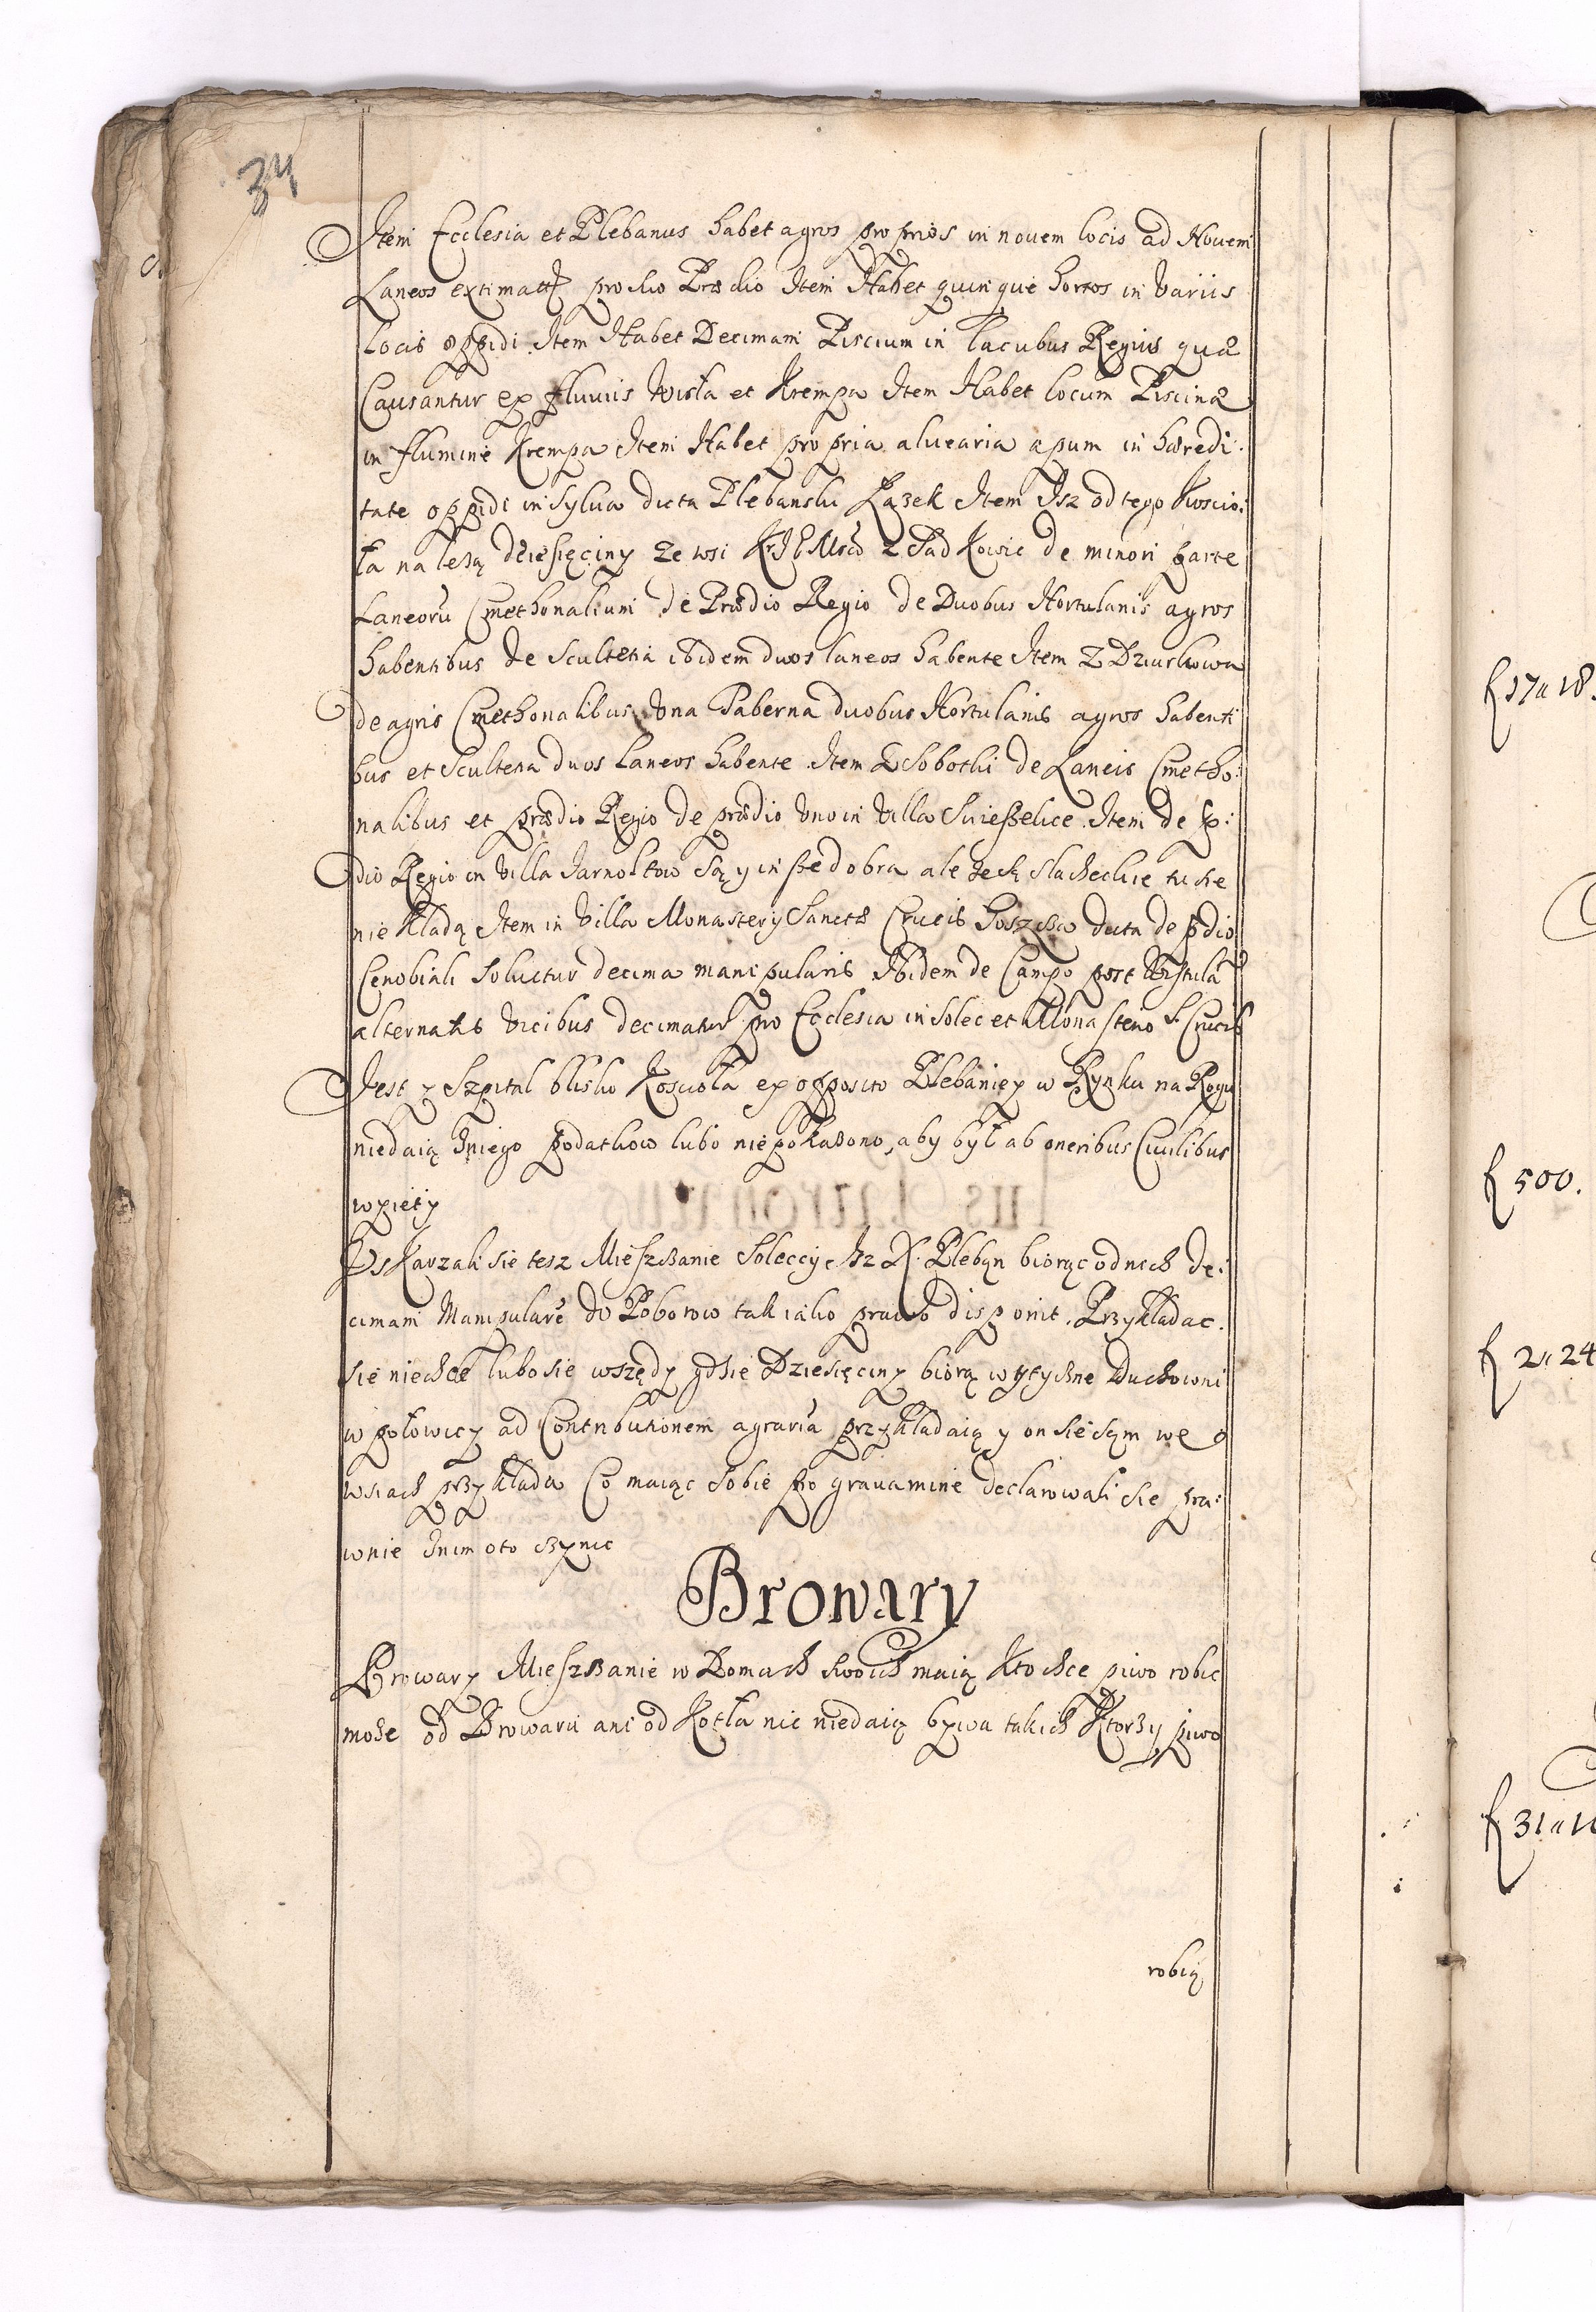 34
Item Ecclesia et Plebanus habet agros proprios in novem locis ad Novem
Laneos extimat prodio Prædio Item Habet quinque hortos in variis
locis oppidi Item Habet Decimam Piscium in lacubus Regiis quæ
Causantur ex fluviis Wisła et Krempa Item Habet locum Piscinæ
in flumine Krempa Item Habet propria alvearia apum in hæredi:
tate oppidi in sylva dicta Plebanski Łazek Item Isz od tego Koscio:
ła należą dziesięciny ze wsi z Sadkowic de minori parte
Laneorū Cmethonalium de Prædio Regio de Duobus Hortulanis agros
habentibus de Scultetia ibidem duos laneos habente Item z Dziurkowa
de agris Cmethonalibus Una Taberna duobus Hortulanis agros habenti
bus et Scultetia duos laneos habente Item z Sobotki de Laneis Cmetho:
nalibus et prædio Regio de prædio Uno in Villa Swieszelice Item de p:
dio Regio in Villa Jarnoltow Są y insze dobra ale że są slacheckie tu sie
nie kladą Item in Villa Monastery Sanctæ Crucis dicta de pdio
Cenobiali solvitur decima manipularis Ibidem de Campo post Wistulā
alternatis vicibus decimatur pro Ecclesia in Solec et Monasterio S. Crucis
Jest y Szpital blisko Koscioła ex opposito Plebaniey w Rynku na Rogu
niedaią zniego podatkow lubo niepokazono, aby był ab oneribus Civilibus
wziety
Uskarzali sie tesz Mieszczanie Soleccy Isz X. Pleban biorąc od nich de:
cimam Manipularē do Poborow tak iako prawo disponit, Przykladac
sie niechce lubo sie wszędy gdzie Dziesięciny biorą wytyczne Duchowni
w połowicy ad Contributionem agrariā przykladaią y on sie sąm we
wsiach przyklada Co maiąc sobie pro gravamine declarowali sie pra:
wnie znim oto czynic
Browary
Browary Mieszczanie w Domach swoich maią Kto chce piwo robic
może od Browaru ani od Kotła nic niedaią bywa takich Ktorzy piwo
robią
f 17 a 18.
f 500.
f 2 a 24
f 31 a 1